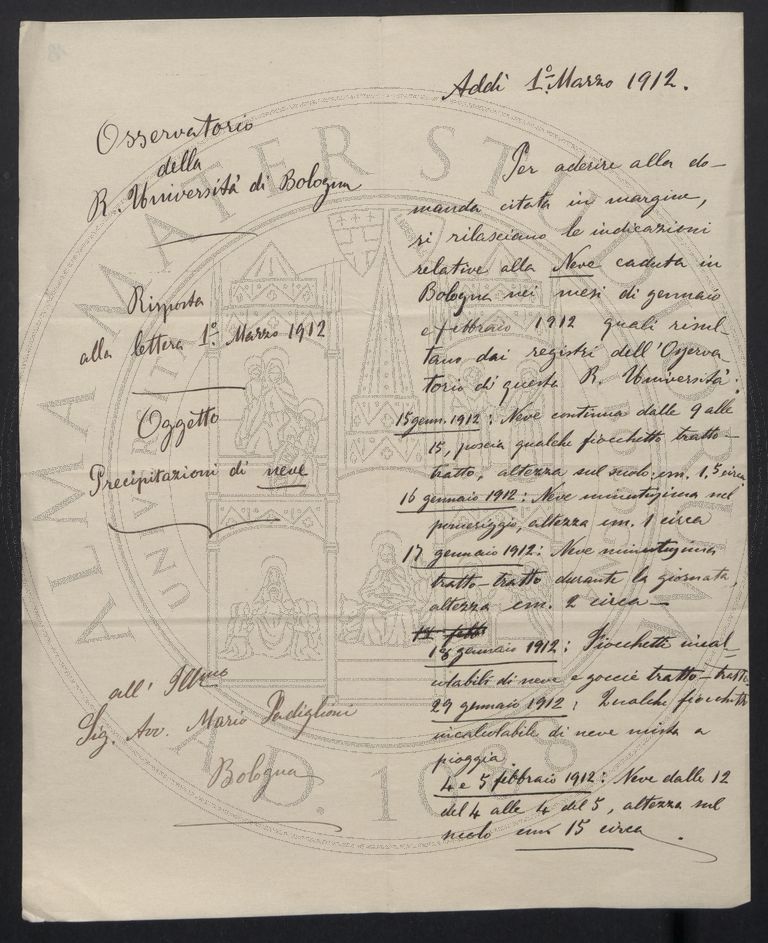 Addì 1º Marzo 1912.
Osservatorio
della
R. Università di Bologna
Risposta
alla lettera 1º Marzo 1912
Oggetto
Precipitazioni di neve
all' Illmo
Sig. Avv. Mario Padiglioni
Bologna
Per aderire alla do-
manda citata in margine,
si rilasciano le indicazioni
relative alla Neve caduta in
Bologna nei mesi di gennaio
e febbraio 1912 quali risul-
tano dai registri dell'Osserva-
torio di questa R. Università:
15 genn. 1912: Neve continua dalle 9 alle
15, poscia qualche fiocchetto tratto-
tratto, altezza sul suolo: cm. 1,5 circa
16 gennaio 1912: Neve minutissima nel
pomeriggio, altezza cm. 1 circa
17 gennaio 1912: Neve minutissima
tratto-tratto durante la giornata,
altezza cm. 2 circa—
18 gennaio 1912: Fiocchetti incal-
colabili di neve e goccie tratto-tratto
29 gennaio 1912: Qualche fiocchetto
incalcolabile di neve mista a
pioggia.
4 e 5 febbraio 1912: Neve dalle 12
del 4 alle 4 del 5, altezza sul
suolo cm. 15 circa.
ALMA MATER STUDIORUM
A.D. 1088